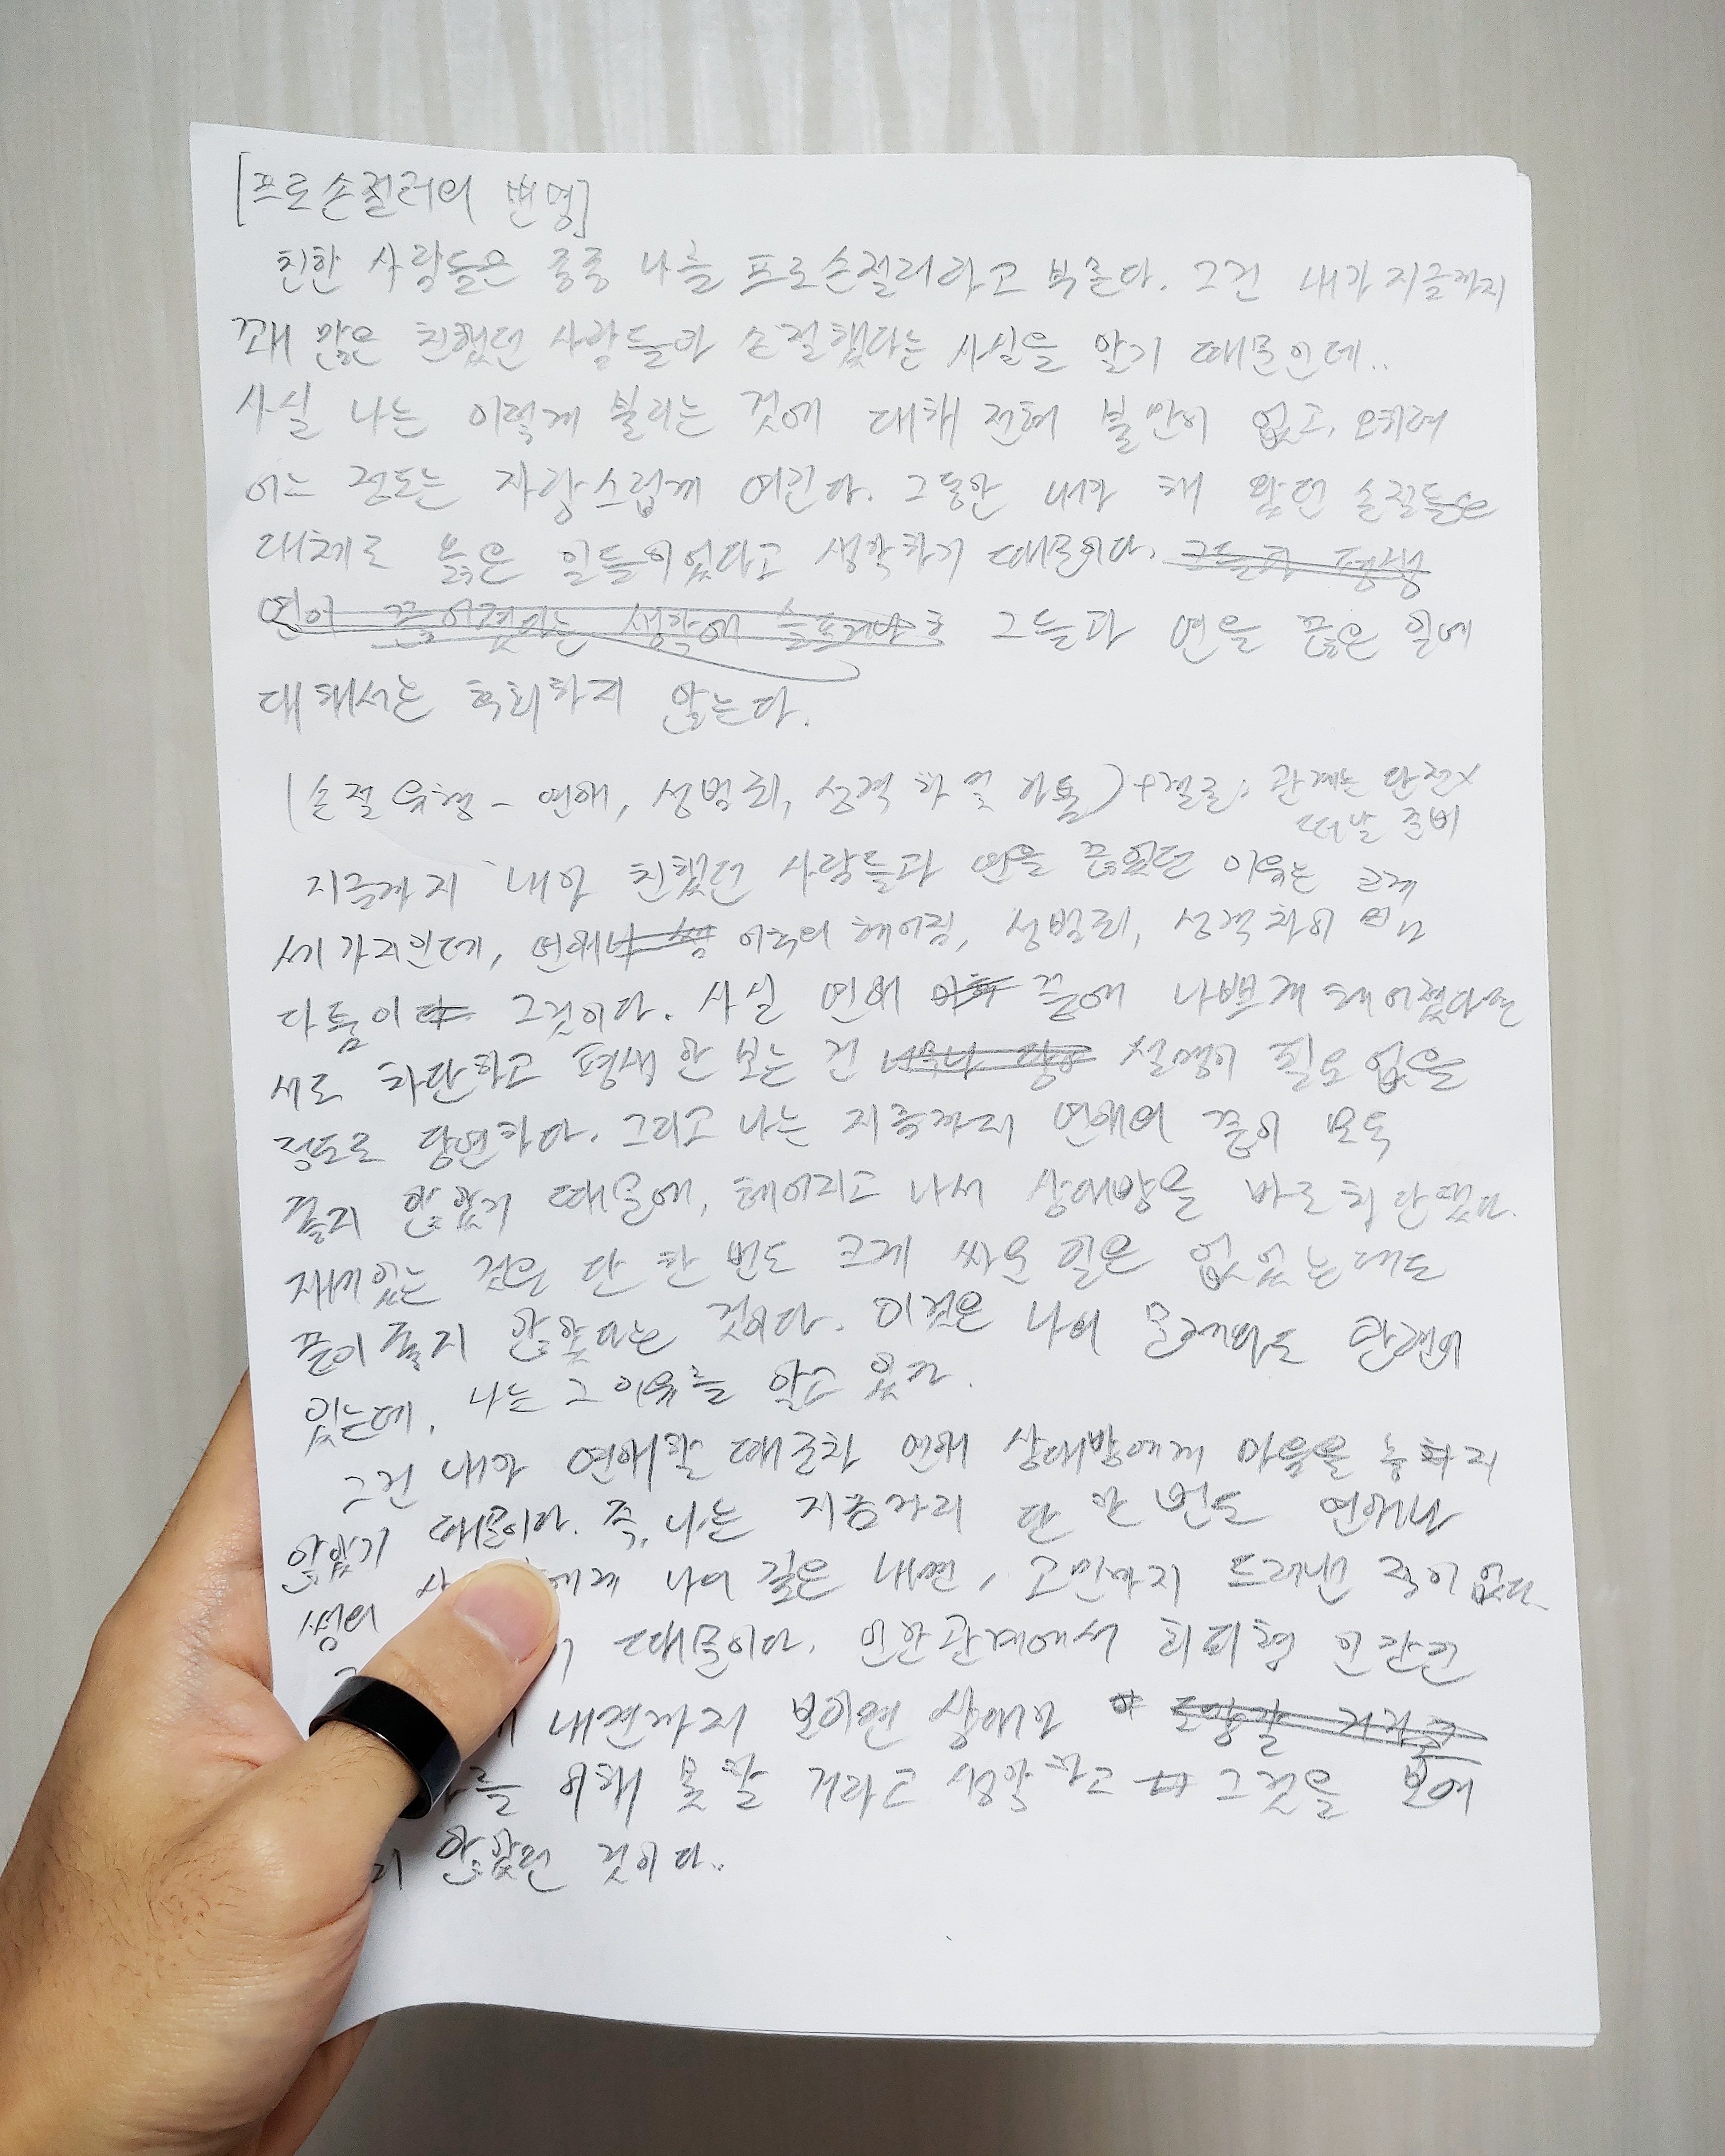 [프로손절러의 변명]
친한 사람들은 종종 나를 프로손절러라고 부른다. 그건 내가 지금까지
꽤 많은 친했던 사람들과 손절했다는 사실을 알기 때문인데..
사실 나는 이렇게 불리는 것에 대해 전혀 불만이 없고, 오히려
어느 정도는 자랑스럽게 여긴다. 그동안 내가 해 왔던 손절들은
대체로 옳은 일들이었다고 생각하기 때문이다. 그들과 평생
연이 끊어졌다는 생각에 그들과 연을 끊은 일에
대해서는 후회하지 않는다.
(손절 유형 - 연애, 성범죄, 성격 차 및 다툼) + 결론: 관계는 완전x
떠날 준비
지금까지 내가 친했던 사람들과 연을 끊었던 이유는 크게
세 가지인데, 연애 이후의 헤어짐, 성범죄, 성격 차이 및
다툼이 그것이다. 사실 연애 이후 끝에 나쁘게 헤어졌다면
서로 차단하고 평생 안 보는 건 너무나 당연 설명이 필요 없을
정도로 당연하다. 그리고 나는 지금까지 연애의 끝이 모두
좋지 않았기 때문에, 헤어지고 나서 상대방을 바로 차단했다.
재밌는 것은 단 한 번도 크게 싸운 일은 없었는데도
끝이 좋지 않았다는 것이다. 이것은 나의 문제와도 관련이
있는데, 나는 그 이유를 알고 있다.
그건 내가 연애할 때조차 연애 상대방에게 마음을 놓지
않았기 때문이다. 즉, 나는 지금까지 단 한 번도 연애나
에게 나의 깊은 내면, 고민까지 드러낸 적이 없다
때문이다. 인간관계에서 회피형 인간인
내면까지 보이면 상대가 도망갈 거라고
를 이해 못 할 거라고 생각하고 그것을 보여
지 않았던 것이다..